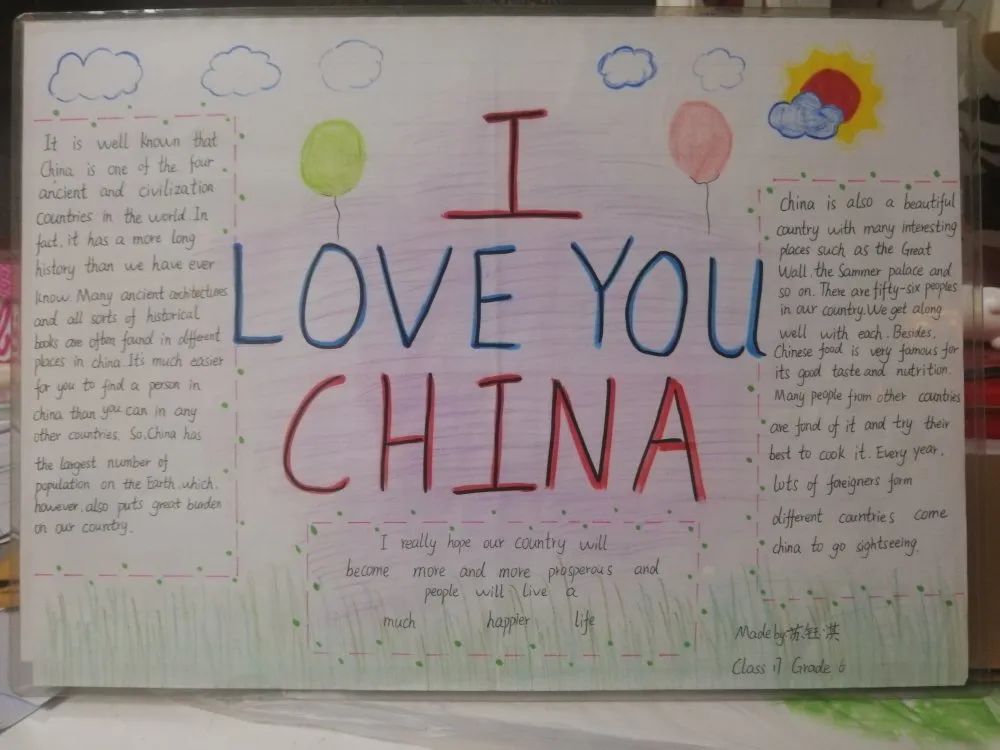 I
LOVE YOU
CHINA
It is well known that
China is one of the four
ancient and civilization
countries in the world. In
fact, it has a more long
history than we have ever
know. Many ancient architectures
and all sorts of historical
books are often found in different
places in china. It's much easier
for you to find a person in
china than you can in any
other countries. So, China has
the largest number of
population on the Earth, which,
however, also puts great burden
on our country.
I really hope our country will
become more and more prosperous and
people will live a
much happier life
China is also a beautiful
country with many interesting
places such as the Great
Wall, the Sammer palace and
so on. There are fifty-six peoples
in our country. We get along
well with each. Besides,
Chinese food is very famous for
its good taste and nutrition.
Many people from other countries
are fond of it and try their
best to cook it. Every year,
lots of foreigners form
different countries come
china to go sightseeing.
Made by: 苏钰淇
Class 17 Grade 6